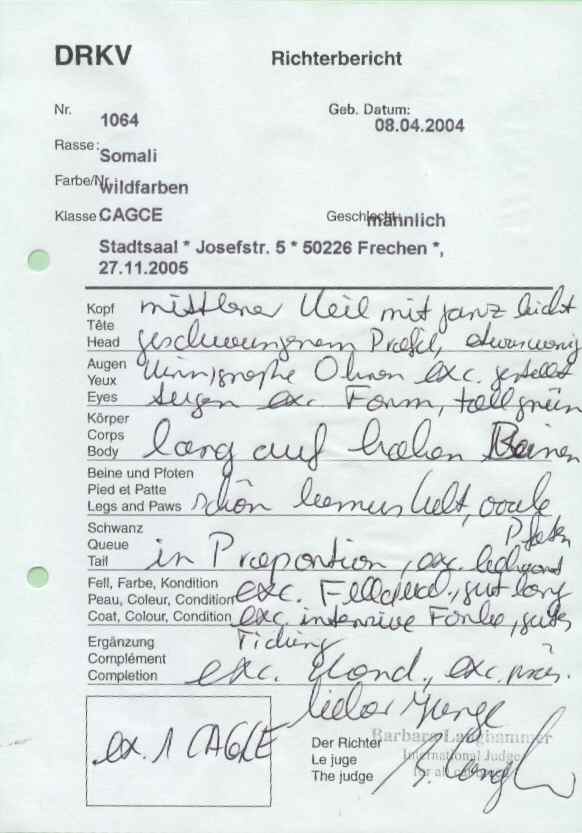 DRKV Richterbericht
Nr. 1064 Geb. Datum: 08.04.2004
Rasse: Somali
Farbe/Nr. wildfarben
Klasse: CAGCE Geschlecht männlich
Stadtsaal * Josefstr. 5 * 50226 Frechen *,
27.11.2005
Kopf
Tête
Head
mittlerer Keil mit ganz leicht
geschwungenem Profil, etwas wenig
Augen
Yeux
Eyes
Kinn, große Ohren exc. gestellt
Augen exc. Form, hellgrün
Körper
Corps
Body
lang auf hohen Beinen
Beine und Pfoten
Pied et Patte
Legs and Paws
schön bemuskelt, ovale
Pfoten
Schwanz
Queue
Tail
in Proportion, exc.
Fell, Farbe, Kondition
Peau, Coleur, Condition
Coat, Colour, Condition
exc. gut lang
exc. intensive Farbe, gutes
Ticking
Ergänzung
Complément
Completion
exc. Kond., exc. präs.
lieber Junge
ex. 1 CAGCE
Der Richter
Le juge
The judge
Barbara Langhammer
International Judge
for all